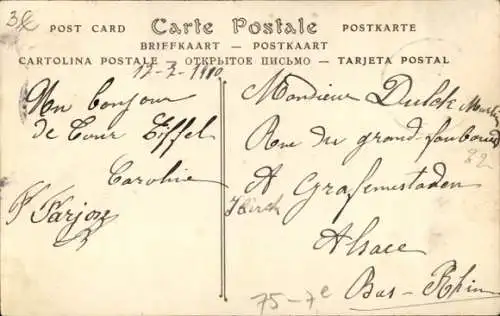 3€
POST CARD Carte Postale POSTKARTE
BRIEFKAART — POSTKAART
CARTOLINA POSTALE — ОТКРЫТОЕ ПИСЬМО — TARJETA POSTAL
12-3-1910
Un bonjour
de Tour Eiffel
Caroline
F Farjon
Monsieur Dulck Martin
Rue du grand faubourg
22
A Grafenstaden
Kirch
Alsace
Bas-Rhin
75-7e